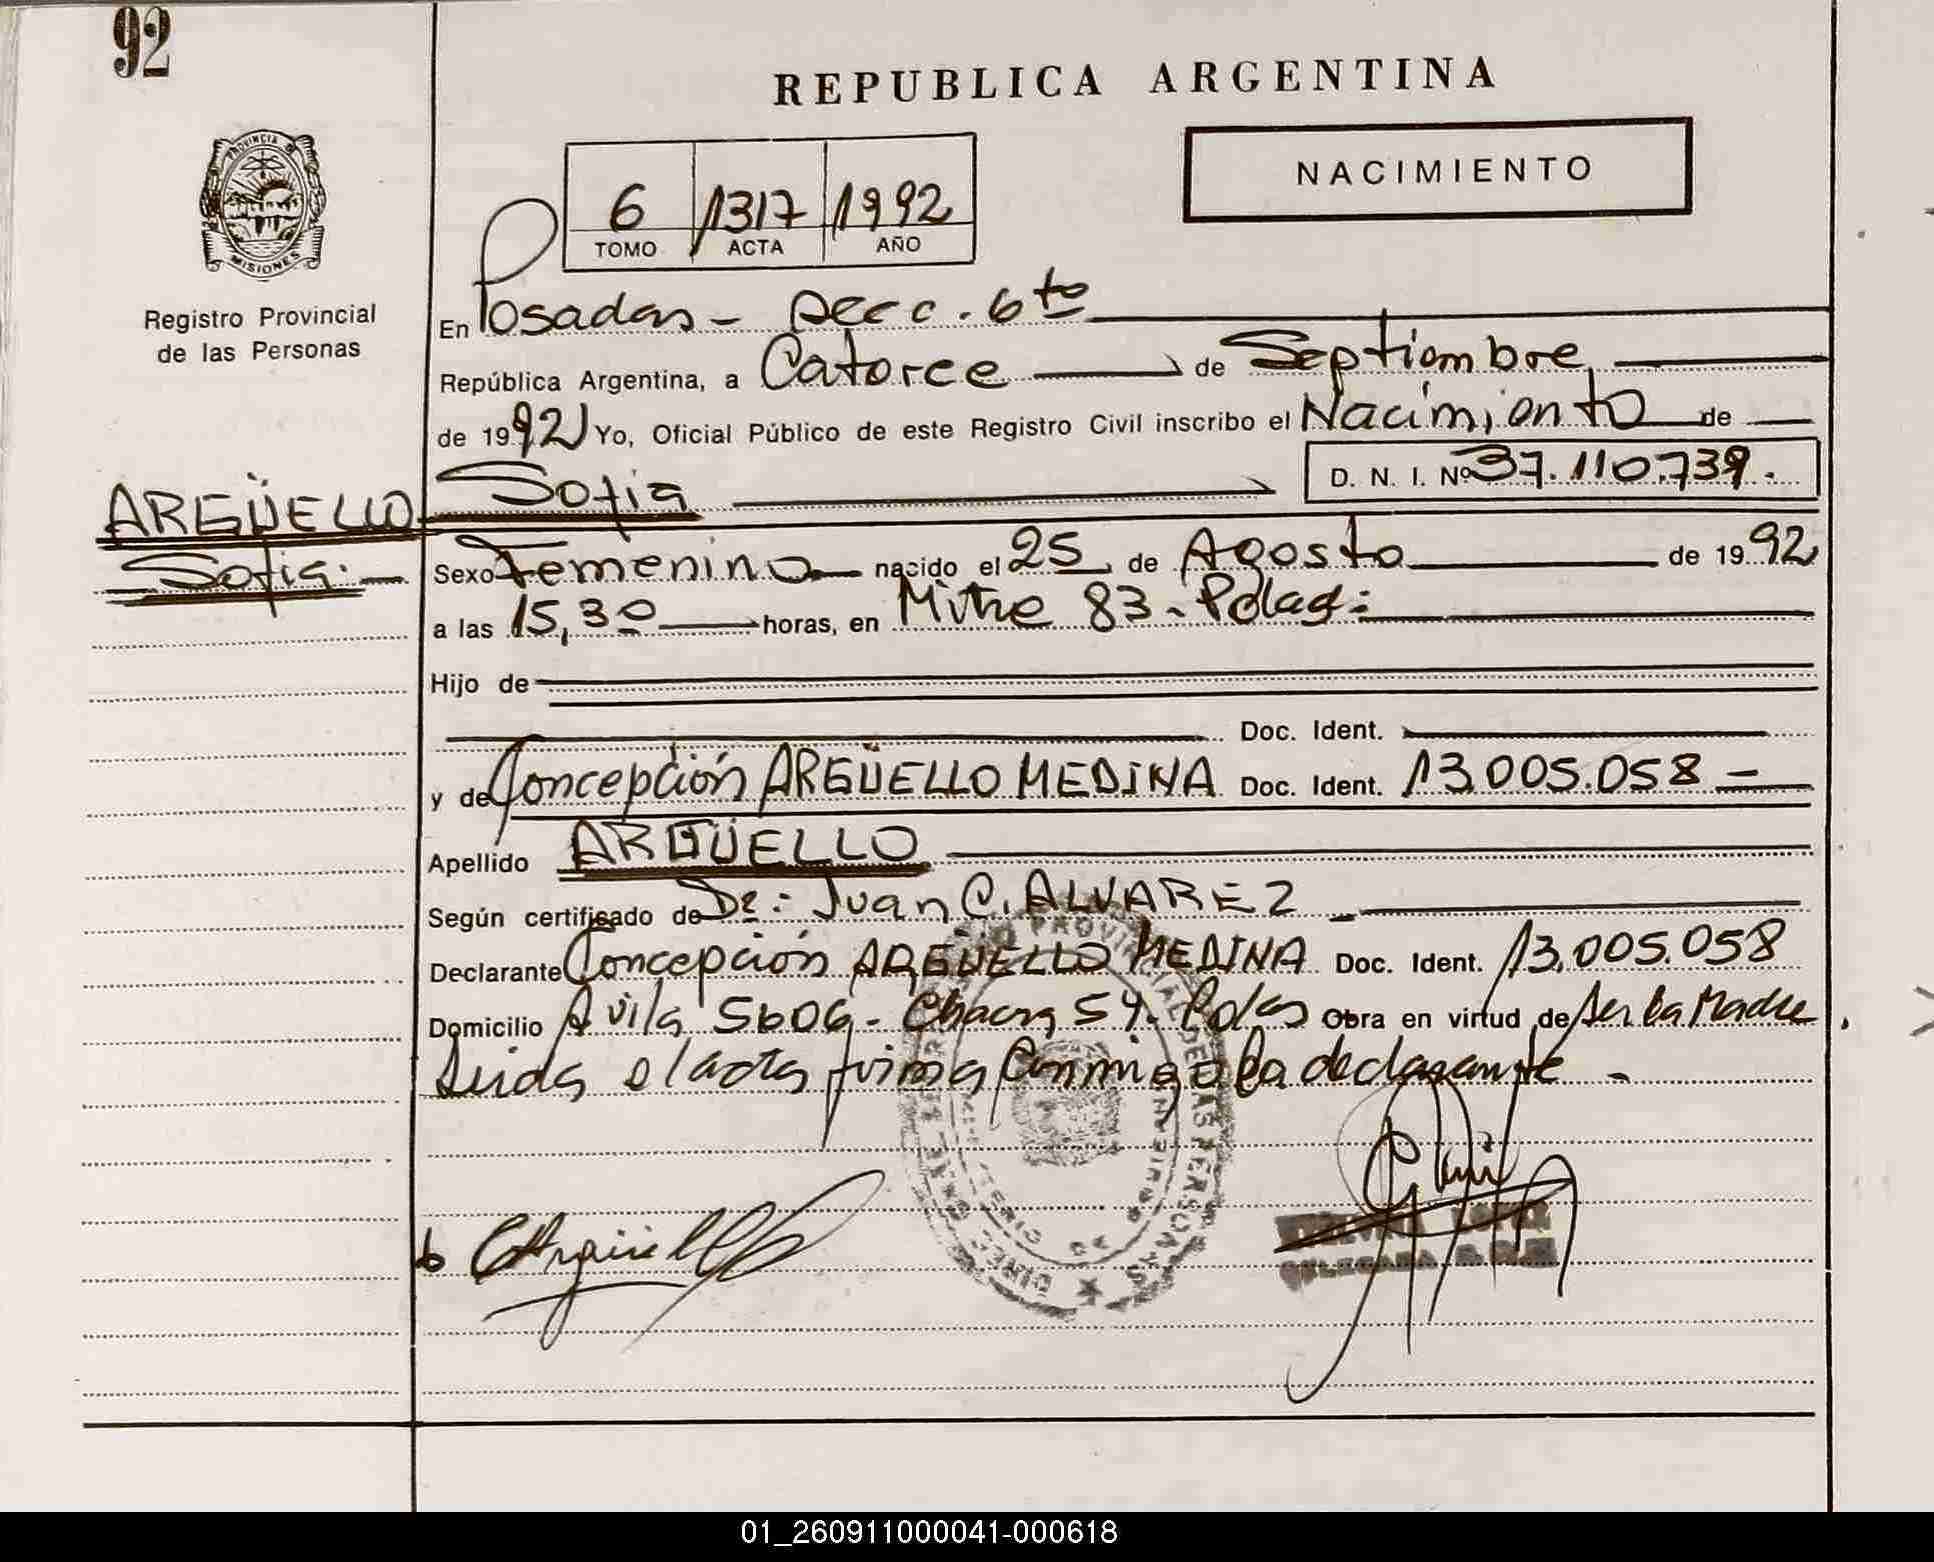 92
REPUBLICA ARGENTINA
NACIMIENTO
PROVINCIA DE
MISIONES
6 1317 1992
TOMO ACTA AÑO
Registro Provincial
de las Personas
En Posadas - Secc. 6to
República Argentina, a Catorce de Septiembre
de 1992 Yo, Oficial Público de este Registro Civil inscribo el Nacimiento de
Sofia D. N. I. Nº 37.110.739.
ARGÜELLO
Sofia.-
Sexo Femenino nacido el 25 de Agosto de 1992
a las 15,30 horas, en Mitre 83 - Pdas:
Hijo de
Doc. Ident.
y de Concepción ARGÜELLO MEDINA Doc. Ident. 13.005.058 -
Apellido ARGÜELLO
Según certificado de Dr: Juan C. ALVAREZ
Declarante Concepción ARGÜELLO MEDINA Doc. Ident. 13.005.058
Domicilio Avila 5606 - Chacra 54. Pdas Obra en virtud de ser la Madre.
Leida el acta firma conmigo la declarante -
DELEGADA
01_260911000041-000618